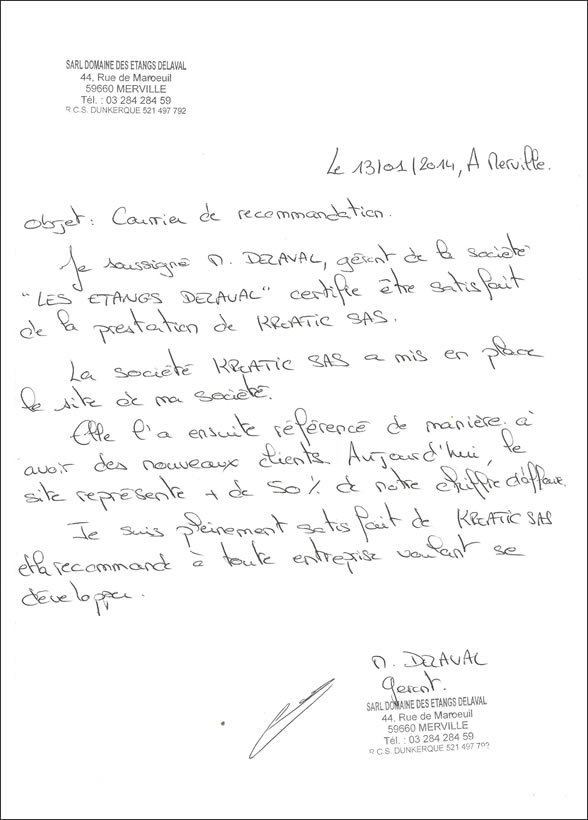 SARL DOMAINE DES ETANGS DELAVAL
44, Rue de Maroeuil
59660 MERVILLE
Tél. : 03 284 284 59
R.C.S. DUNKERQUE 521 497 792
Le 13/01/2014, A Merville.
Objet : Courrier de recommandation.
Je soussigné M. DELAVAL, gérant de la société
"LES ETANGS DELAVAL" certifie être satisfait
de la prestation de KREATIC SAS.
La société KREATIC SAS a mis en place
le site de ma société.
Elle l'a ensuite référencé de manière à
avoir des nouveaux clients. Aujourd'hui, le
site représente + de 50% de notre chiffre d'affaire.
Je suis pleinement satisfait de KREATIC SAS
et la recommand à toute entreprise voulant se
développer.
M. DELAVAL
Gérant.
SARL DOMAINE DES ETANGS DELAVAL
44, Rue de Maroeuil
59660 MERVILLE
Tél. : 03 284 284 59
R.C.S. DUNKERQUE 521 497 792